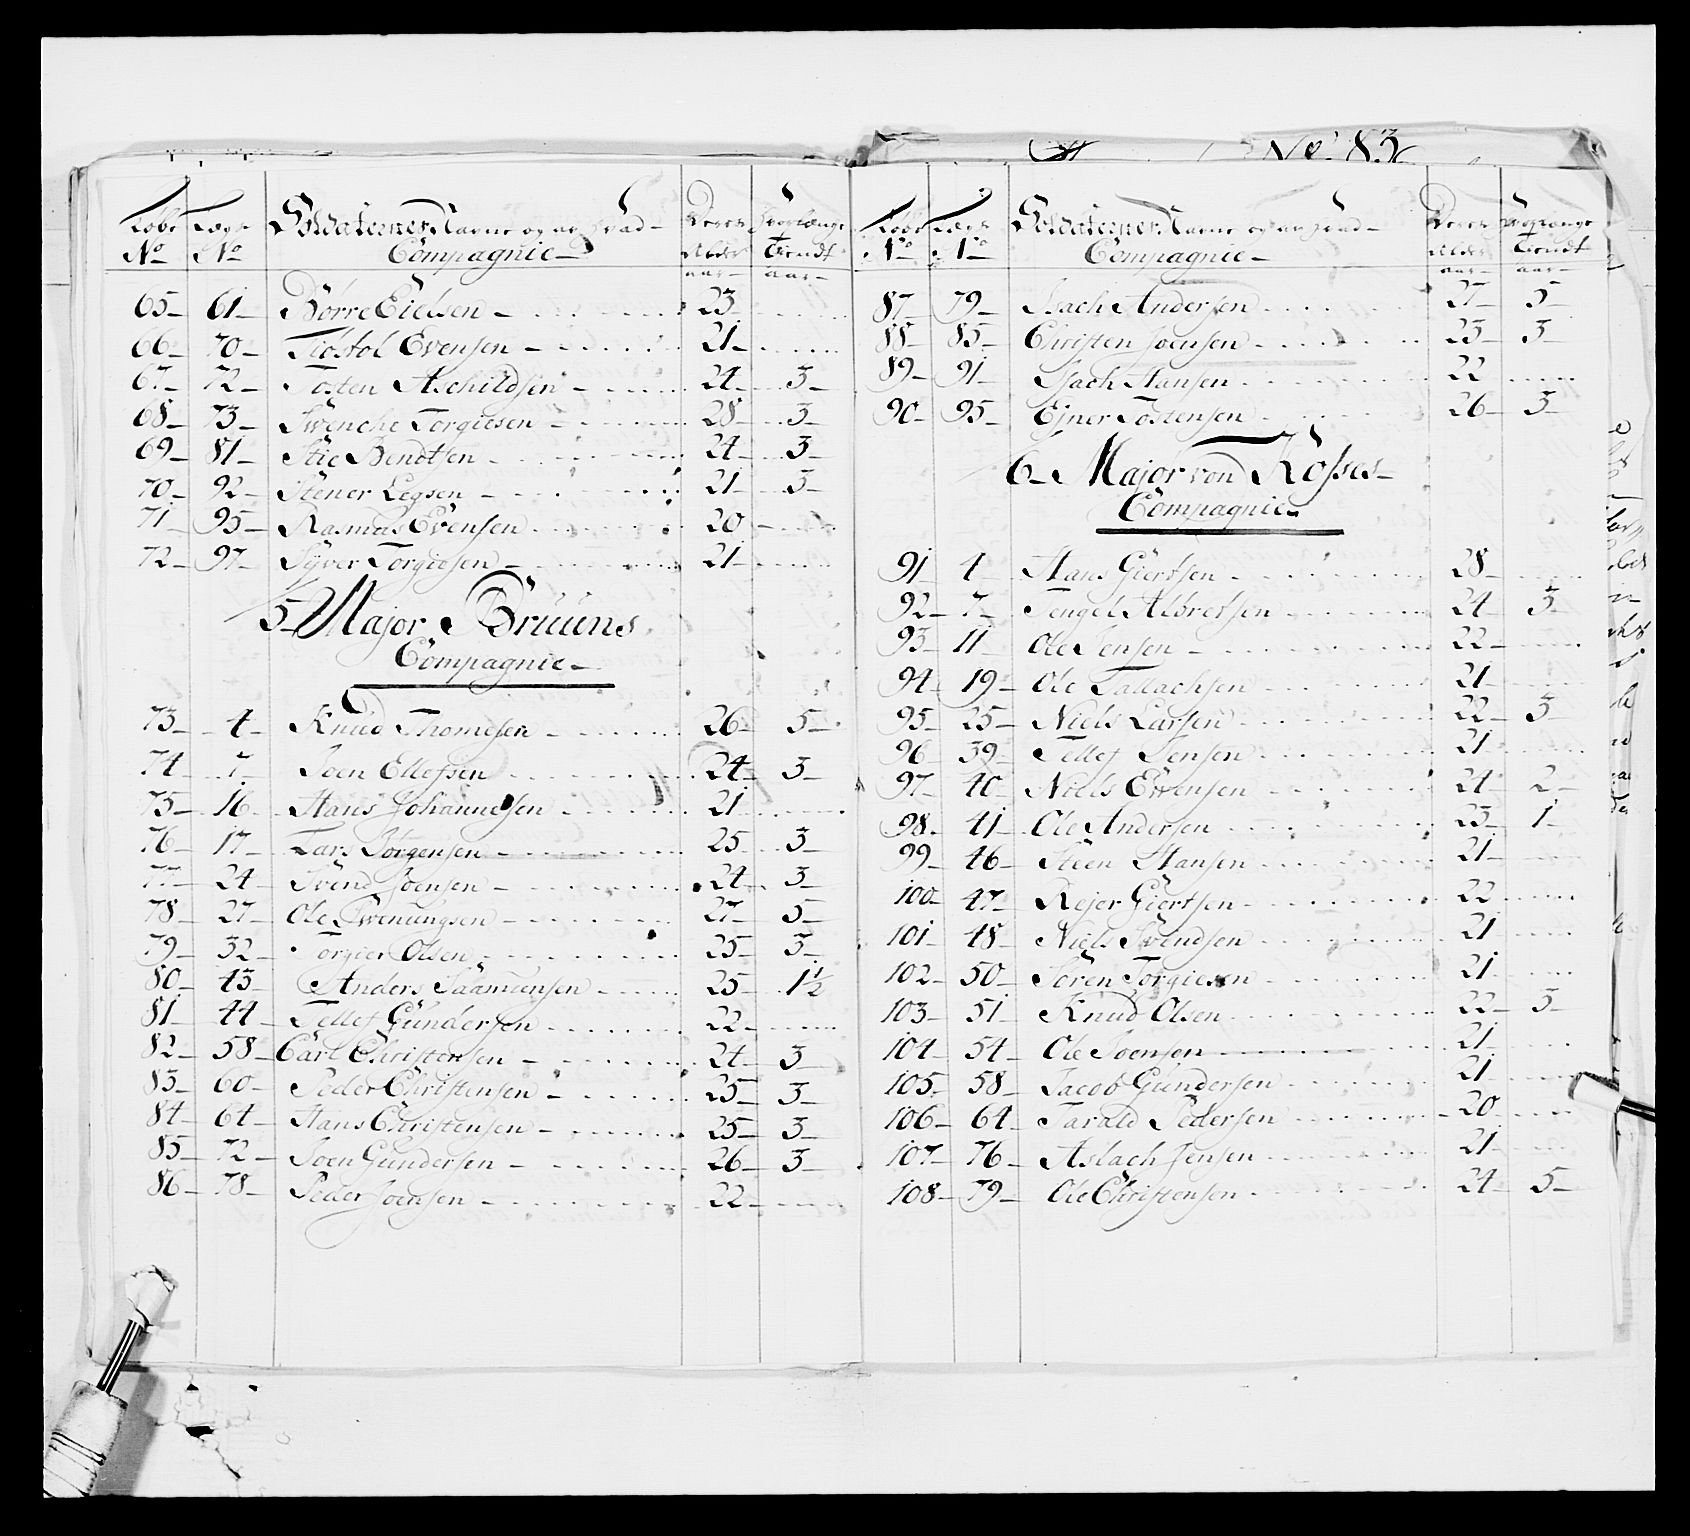 No. 83
Løbe No Lægs No Soldaternes Navne og af hvad Compagnie Deres Alder aar Hvorlænge tiendt aar
65 61 Børre Eielsen 23
66 70 Tiøstol Evensen 21
67 72 Tosten Aschildsen 24 3
68 73 Svenche Torgiesen 28 3
69 81 Stie Bendtsen 24 3
70 92 Stener Legsen 21 3
71 95 Rasmus Evensen 20
72 97 Syver Torgiesen 21
5 Major Bruuns
Compagnie
73 4 Knud Thomesen 26 5
74 7 Joen Ellefsen 24 3
75 16 Hans Johannesen 21
76 17 Lars Jörgensen 25 3
77 24 Svend Joensen 24 3
78 27 Ole Svenungsen 27 5
79 32 Torgier Olsen 25 3
80 43 Anders Saamuensen 25 1½
81 44 Tellef Gundersen 22
82 58 Carl Christensen 24 3
83 60 Peder Christensen 25 3
84 64 Hans Christensen 25 3
85 72 Joen Gundersen 26 3
86 78 Peder Joensen 22
Løbe No Lægs No Soldaternes Navne og af hvad Compagnie Deres Alder aar Hvorlænge tiendt aar
87 79 Isach Andersen 27 5
88 85 Christen Joensen 23 3
89 91 Isach Hansen 22
90 95 Ejner Tostensen 26 3
6 Major von Kosses
Compagnie
91 4 Hans Giertsen 28
92 7 Tengel Albretsen 24 3
93 11 Ole Jensen 22
94 19 Ole Tallachsen 21
95 25 Niels Larsen 22 3
96 39 Tellef Jensen 21
97 40 Niels Evensen 24 2
98 41 Ole Andersen 23 1
99 46 Steen Hansen 21
100 47 Rejer Giertsen 22
101 48 Niels Svendsen 21
102 50 Sören Torgiesen 21
103 51 Knud Olsen 22 3
104 54 Ole Joensen 21
105 58 Jacob Gundersen 21
106 64 Tarald Pedersen 20
107 76 Aslach Jensen 21
108 79 Ole Christensen 24 5